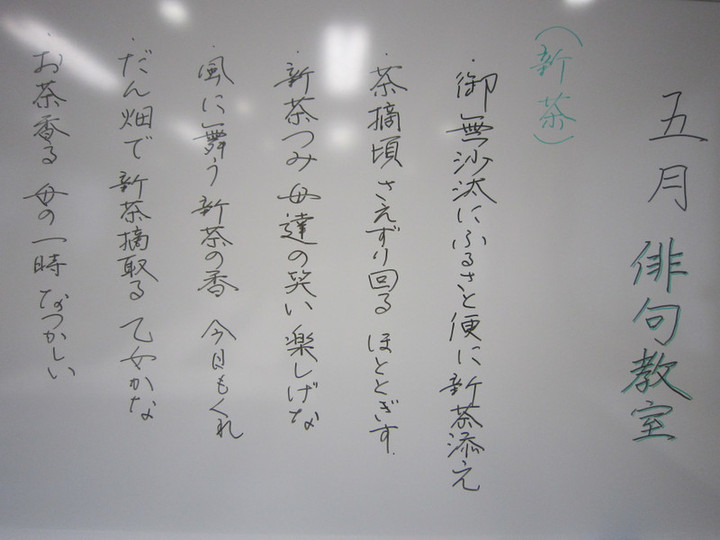 五月 俳句教室
（新茶）
・御無沙汰にふるさと便に新茶添え
・茶摘頃 さえずり回る ほととぎす.
・新茶つみ 母達の笑い 楽しげな
・風に舞う 新茶の香 今日もくれ
・だん畑で 新茶摘取る 乙女かな
・お茶香る 母の一時 なつかしい